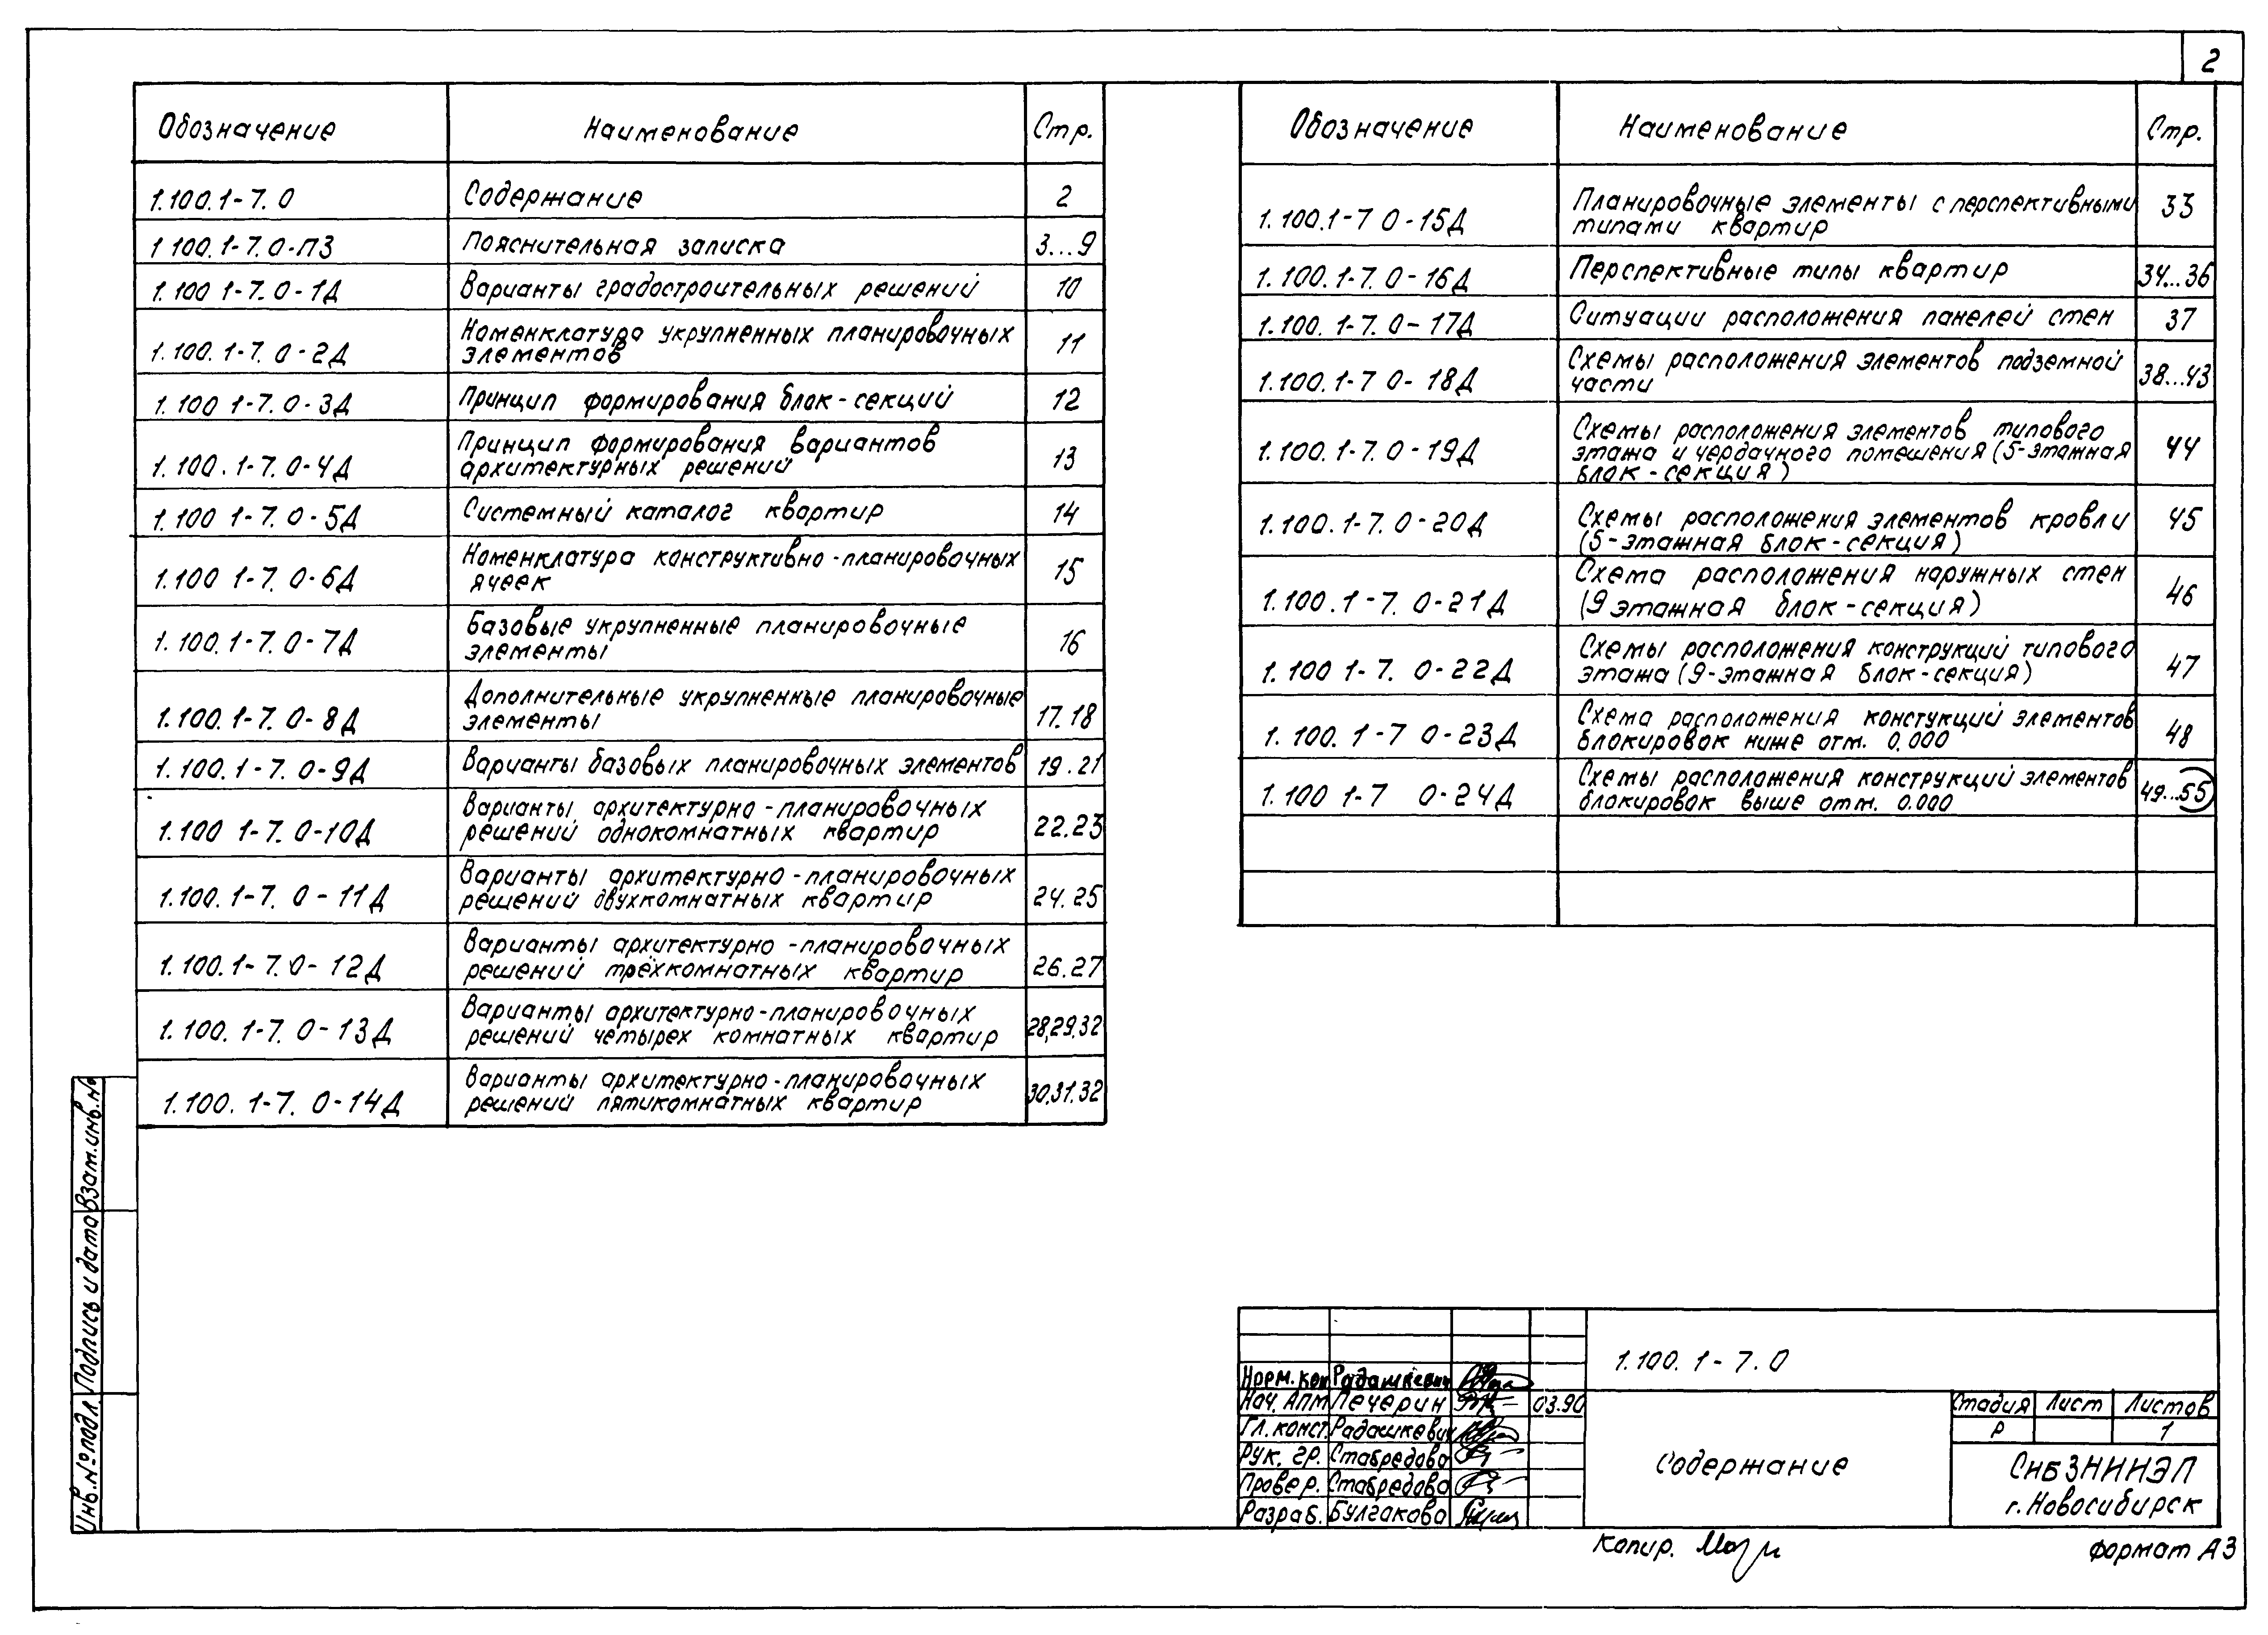 2
Обозначение Наименование Стр.
1.100.1-7.0 Содержание 2
1 100.1-7.0-ПЗ Пояснительная записка 3...9
1.100 1-7.0-1Д Варианты градостроительных решений 10
1.100.1-7.0-2Д Номенклатура укрупненных планировочных
элементов 11
1.100 1-7.0-3Д Принцип формирования блок-секций 12
1.100.1-7.0-4Д Принцип формирования вариантов
архитектурных решений 13
1.100 1-7.0-5Д Системный каталог квартир 14
1.100 1-7.0-6Д Номенклатура конструктивно-планировочных
ячеек 15
1.100.1-7.0-7Д Базовые укрупненные планировочные
элементы 16
1.100.1-7.0-8Д Дополнительные укрупненные планировочные
элементы 17.18
1.100.1-7.0-9Д Варианты базовых планировочных элементов 19.21
1.100 1-7.0-10Д Варианты архитектурно-планировочных
решений однокомнатных квартир 22.23
1.100.1-7.0-11Д Варианты архитектурно-планировочных
решений двухкомнатных квартир 24.25
1.100.1-7.0-12Д Варианты архитектурно-планировочных
решений трёхкомнатных квартир 26.27
1.100.1-7.0-13Д Варианты архитектурно-планировочных
решений четырех комнатных квартир 28,29.32
1.100.1-7.0-14Д Варианты архитектурно-планировочных
решений пятикомнатных квартир 30.31.32
Обозначение Наименование Стр.
1.100.1-7 0-15Д Планировочные элементы с перспективными
типами квартир 33
1.100.1-7.0-16Д Перспективные типы квартир 34...36
1.100.1-7.0-17Д Ситуации расположения панелей стен 37
1.100.1-7 0-18Д Схемы расположения элементов подземной
части 38...43
1.100.1-7.0-19Д Схемы расположения элементов типового
этажа и чердачного помещения (5-этажная
блок-секция) 44
1.100.1-7.0-20Д Схемы расположения элементов кровли
(5-этажная блок-секция) 45
1.100.1-7.0-21Д Схема расположения наружных стен
(9 этажная блок-секция) 46
1.100 1-7.0-22Д Схемы расположения конструкций типового
этажа (9-этажная блок-секция) 47
1.100.1-7 0-23Д Схема расположения констукций элементов
блокировок ниже отм. 0.000 48
1.100 1-7 0-24Д Схемы расположения конструкций элементов
блокировок выше отм. 0.000 49...55
Взам.инв.№
Подпись и дата
Инв.№подл.
1.100.1-7.0
Норм.кон Радашкевич
Нач. АПМ Печерин 03.90
Гл.конст. Радашкевич
Рук. гр. Стабредова
Провер. Стабредова
Разраб. Булгакова
Содержание
Стадия Лист Листов
Р 1
СибЗНИИЭП
г.Новосибирск
Копир.
Формат А3